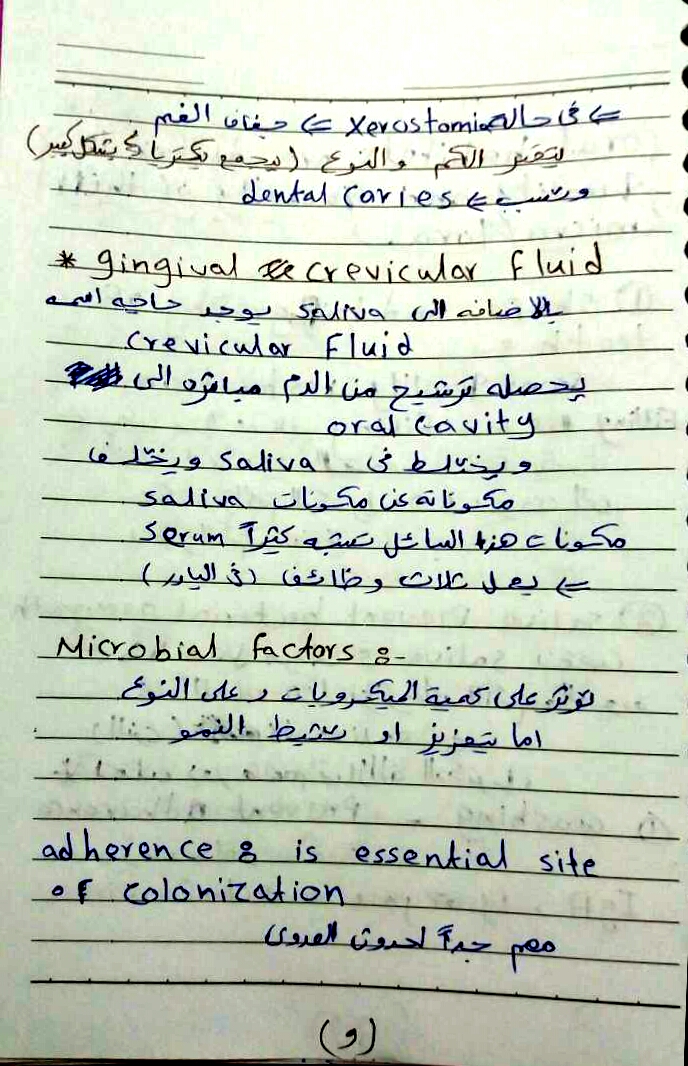 ⇐ في حالة Xerostomia ⇐ جفاف الفم
يتغير الكم والنوع (يتجمع بكتريا بشكل كبير)
وتسبب ⇐ dental caries
* gingival crevicular fluid
بالاضافه الى saliva يوجد حاجه اسمه
crevicular fluid
يحصله ترشيح من الدم مباشره الى
oral cavity
ويختلط في saliva ويختلف
مكوناته عن مكونات saliva
مكونات هذا السائل تشبه كثيراً serum
⇐ يعمل ثلاث وظائف (في الباور)
Microbial factors :-
تؤثر على كمية الميكروبات وعلى النوع
اما بتعزيز او تثبيط النمو
adherence : is essential site
of colonization
مهم جداً لحدوث العدوى
(و)